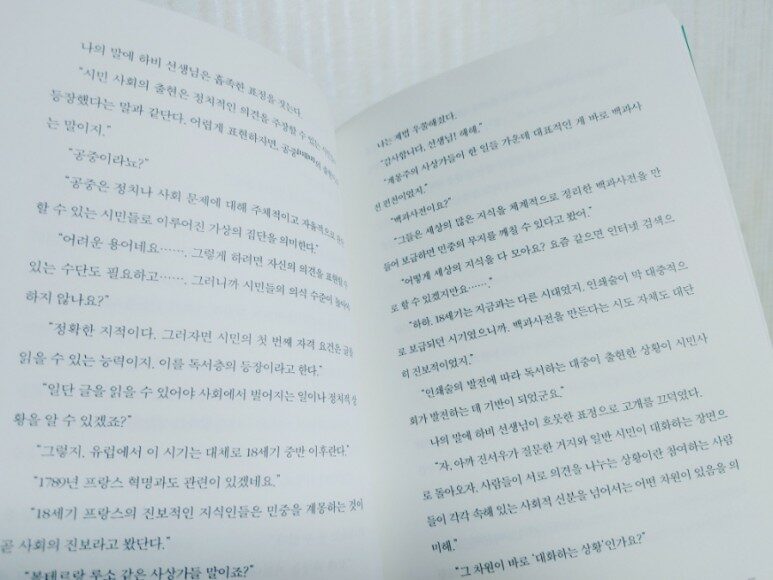 나의 말에 하비 선생님은 흡족한 표정을 짓는다.
"시민 사회의 출현은 정치적인 의견을 주장할 수 있는
등장했다는 말과 같단다. 어렵게 표현하자면, 공중
는 말이지."
"공중이라뇨?"
"공중은 정치나 사회 문제에 대해 주체적이고 자율적으로
할 수 있는 시민들로 이루어진 가상의 집단을 의미한다."
"어려운 용어네요……. 그렇게 하려면 자신의 의견을 표현할 수
있는 수단도 필요하고……. 그러니까 시민들의 의식 수준이
하지 않나요?"
"정확한 지적이다. 그러자면 시민의 첫 번째 자격 요건은 글을
읽을 수 있는 능력이지. 이를 독서층의 등장이라고 한다."
"일단 글을 읽을 수 있어야 사회에서 벌어지는 일이나 정치적 상
황을 알 수 있겠죠?"
"그렇지. 유럽에서 이 시기는 대체로 18세기 중반 이후란다."
"1789년 프랑스 혁명과도 관련이 있겠네요."
"18세기 프랑스의 진보적인 지식인들은 민중을 계몽하는 것이
곧 사회의 진보라고 봤단다."
"볼테르랑 루소 같은 사상가들 말이죠?"
나는 제법 우쭐해졌다.
"감사합니다, 선생님! 헤헤."
"계몽주의 사상가들이 한 일들 가운데 대표적인 게 바로 백과사
전 편찬이었지."
"백과사전이요?"
"그들은 세상의 많은 지식을 체계적으로 정리한 백과사전을 만
들어 보급하면 민중의 무지를 깨칠 수 있다고 봤어."
"어떻게 세상의 지식을 다 모아요? 요즘 같으면 인터넷 검색으
로 할 수 있겠지만요……."
"하하. 18세기는 지금과는 다른 시대였지. 인쇄술이 막 대중적으
로 보급되던 시기였으니까. 백과사전을 만든다는 시도 자체도 대단
히 진보적이었지."
"인쇄술의 발전에 따라 독서하는 대중이 출현한 상황이 시민사
회가 발전하는 데 기반이 되었군요."
나의 말에 하비 선생님이 흐뭇한 표정으로 고개를 끄덕였다.
"자, 아까 진서우가 질문한 거지와 일반 시민이 대화하는 장면으
로 돌아오자. 사람들이 서로 의견을 나누는 상황이란 참여하는 사람
들이 각각 속해 있는 사회적 신분을 넘어서는 어떤 차원이 있음을 의
미해."
"그 차원이 바로 '대화하는 상황'인가요?"